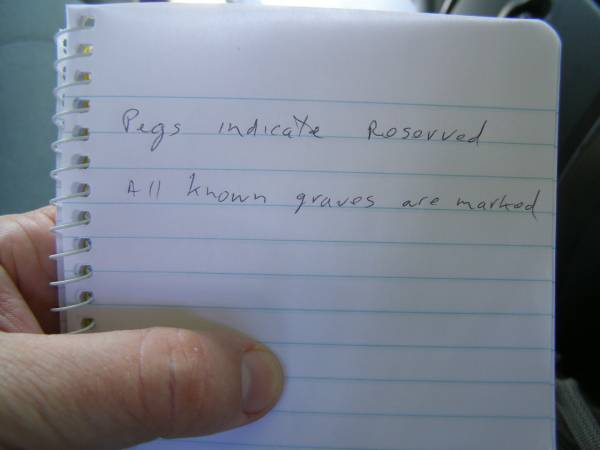 Pegs indicate Reserved
All known graves are marked